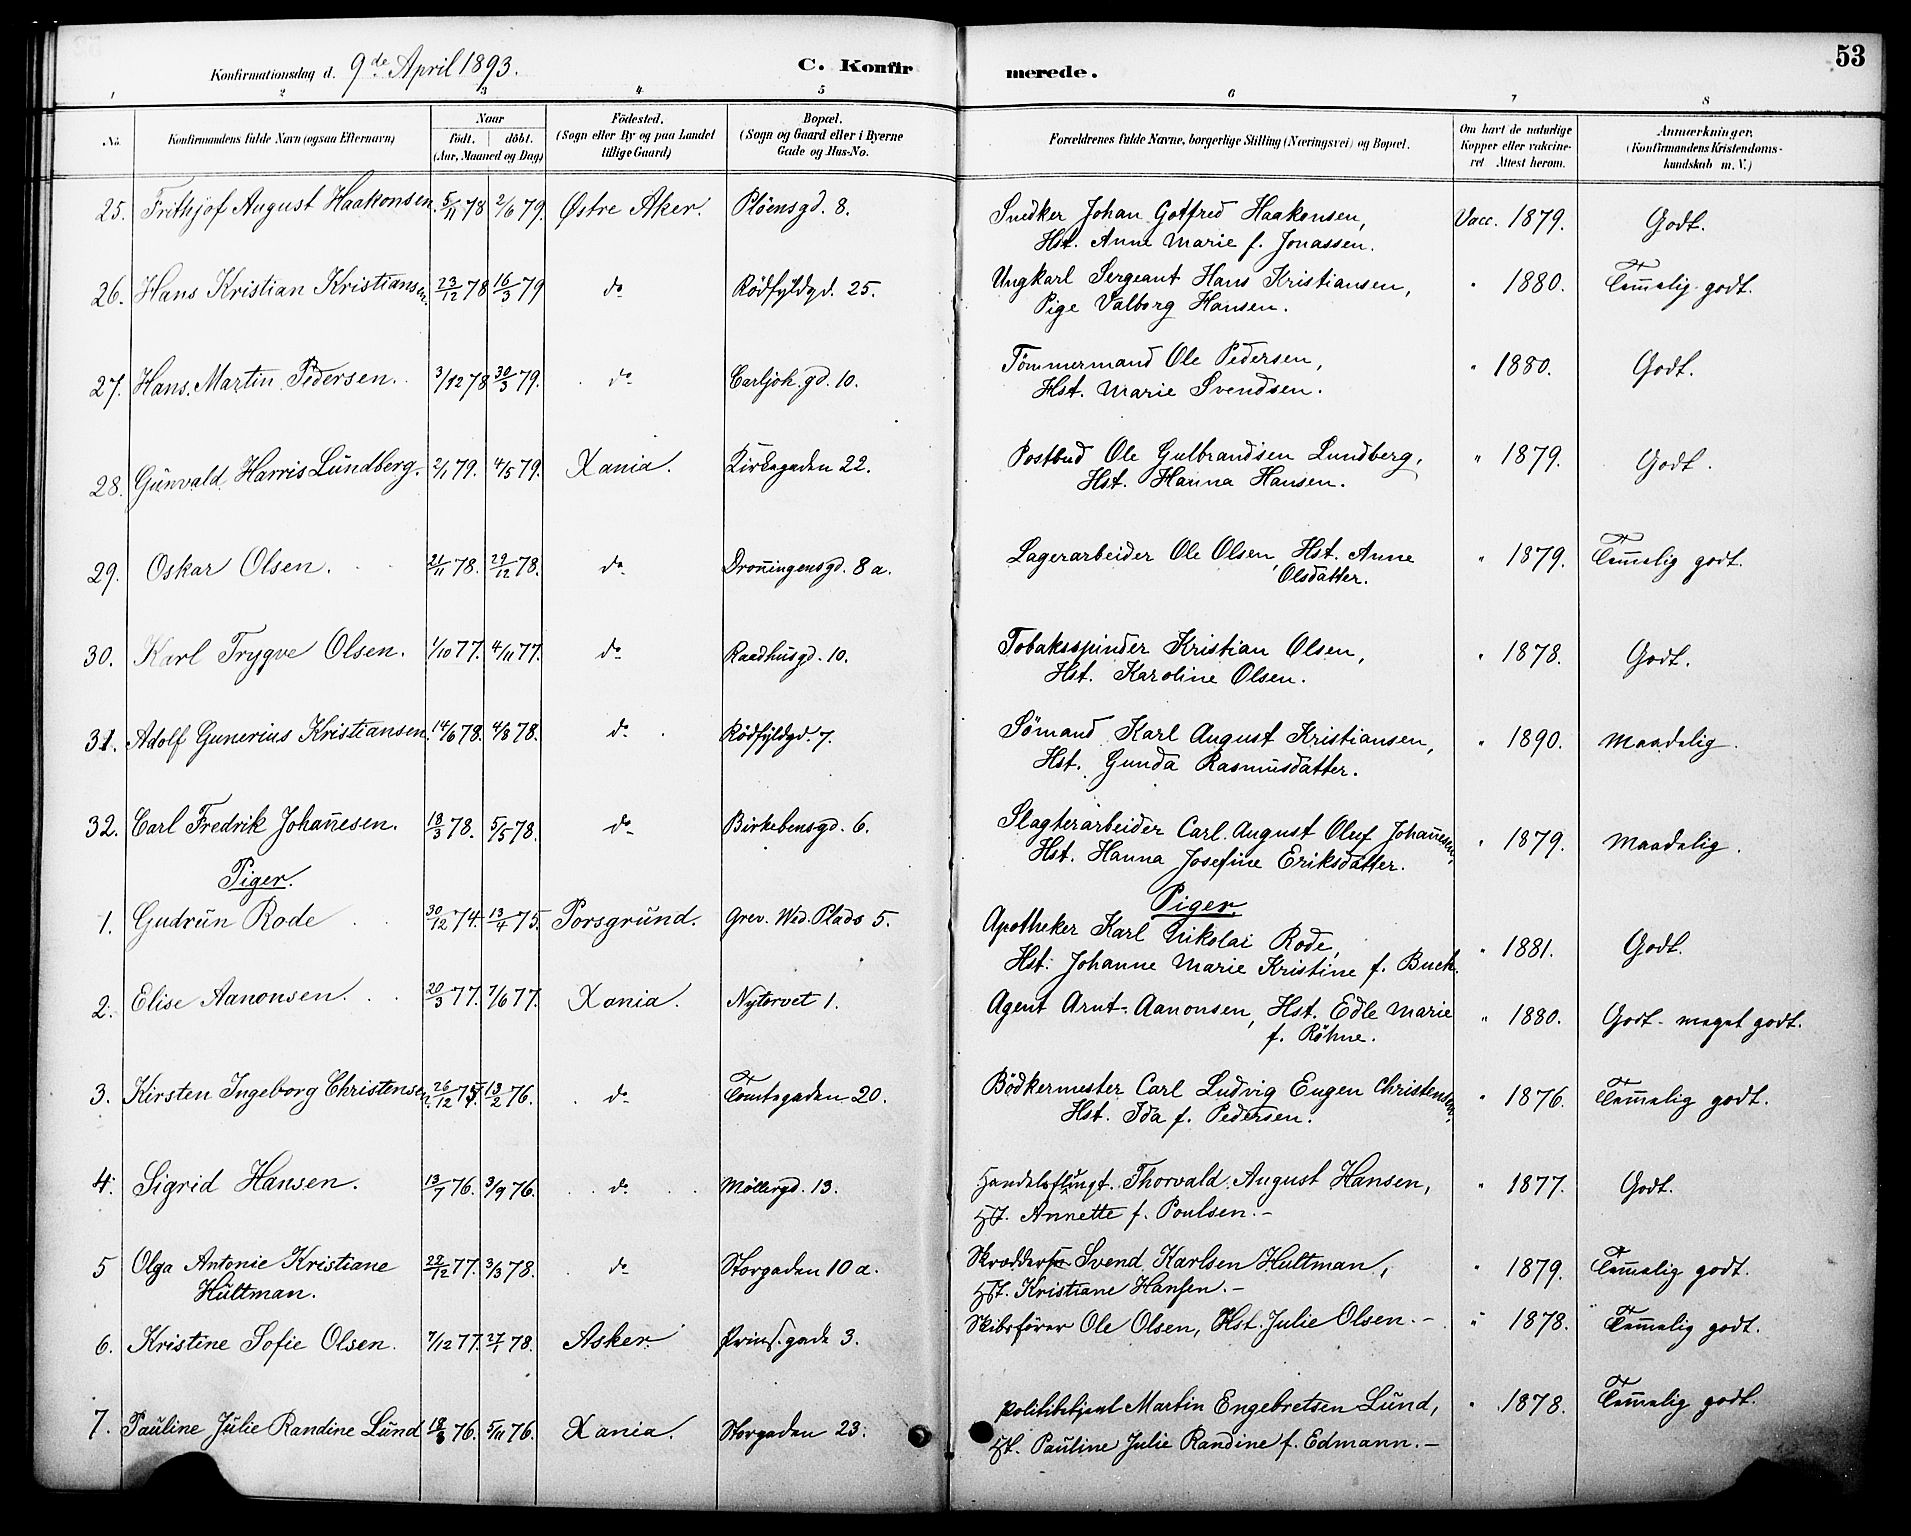 53
Konfirmationsdag d. 9de April 1893.
C. Konfirmerede.
1 2 3 4 5 6 7 8
No.
Konfirmandens fulde Navn (ogsaa Efternavn)
Naar
født. døbt.
(Aar, Maaned og Dag)
Födested.
(Sogn eller By og paa Landet
tillige Gaard)
Bopæl.
(Sogn og Gaard eller i Byerne
Gade og Hus-No.
Forældrenes fulde Navne, borgerlige Stilling (Næringsvei) og Bopæl.
Om havt de naturlige
Kopper eller vakcine-
ret Attest herom.
Anmærkninger.
(Konfirmandens Kristendoms-
kundskab m. V.)
25. Frithjof August Haakonsen. 5/11 78 2/6 79. Østre Aker. Plöensgd. 8. Snedker Johan Gotfred Haakonsen, Vacc. 1879. Godt.
Hst. Anne Marie f. Jonassen.
26. Hans Kristian Kristiansen. 23/12 78 16/3 79 do Rödfyldgd. 25. Ungkarl Sergeant Hans Kristiansen, " 1880. Temmelig godt.
Pige Valborg Hansen.
27. Hans Martin Pedersen. 3/12 78 30/3 79. do Carljoh. gd. 10. Tömmermand Ole Pedersen, " 1880. Godt.
Hst. Marie Svendsen.
28. Gunvald Harris Lundberg. 2/1 79. 4/5 79. Xania. Kirkegaden 22. Postbud Ole Gulbrandsen Lundberg, " 1879. Godt.
Hst. Hanna Hansen.
29. Oskar Olsen. 21/11 78. 29/12 78. do Dronningensgd. 8 a. Lagerarbeider Ole Olsen, Hst. Anne " 1879. Temmelig godt.
Olsdatter.
30. Karl Trygve Olsen. 1/10 77. 4/11 77. do Raadhusgd. 10. Tobaksspinder Kristian Olsen, " 1878. Godt.
Hst. Karoline Olsen.
31. Adolf Gunerius Kristiansen. 14/6 78. 4/8 78. do Rödfyldgd. 7. Sömand Karl August Kristiansen, " 1890. Maadelig.
Hst. Gunda Rasmusdatter.
32. Carl Fredrik Johannesen. 18/3 78. 5/5 78. do Birkebensgd. 6. Slagterarbeider Carl August Oluf Johannesen, " 1879. Maadelig.
Hst. Hanna Josefine Eriksdatter.
Piger. Piger.
1. Gudrun Rode 30/12 74. 13/4 75. Porsgrund. Grev. Wed. Plads 5. Apotheker Karl Nikolai Rode, " 1881. Godt.
Hst. Johanne Marie Kristine f. Buch.
2. Elise Aanonsen. 20/3 77. 7/6 77. Xania. Nytorvet 1. Agent Arnt Aanonsen, Hst. Edle Marie " 1880. Godt - meget godt.
f. Röhne.
3. Kirsten Ingeborg Christensen. 26/12 75 13/2 76. do Tomtegaden 20. Bödkermester Carl Ludvig Eugen Christensen, " 1876. Temmelig godt.
Hst. Ida f. Pedersen.
4. Sigrid Hansen. 13/7 76. 3/9 76. do Møllergd. 13. Handelsfuldmgt. Thorvald August Hansen, " 1877. Godt.
Hst. Annette f. Poulsen.-
5 Olga Antonie Kristiane 28/12 77. 3/3 78. do Storgaden 10 a. Skrædder Svend Karlsen Hultman, " 1879. Temmelig godt.
Hultman. Hst. Kristiane Hansen.-
6. Kristine Sofie Olsen. 7/12 77. 27/1 78. Asker. Prins. gade 3. Skibsfører Ole Olsen, Hst. Julie Olsen.- " 1878. Temmelig godt.
7. Pauline Julie Randine Lund 18/8 76. 5/11 76. Xania. Storgaden 23. Politibetjent Martin Engebretsen Lund, " 1878. Temmelig godt.
Hst. Pauline Julie Randine f. Edmann.-